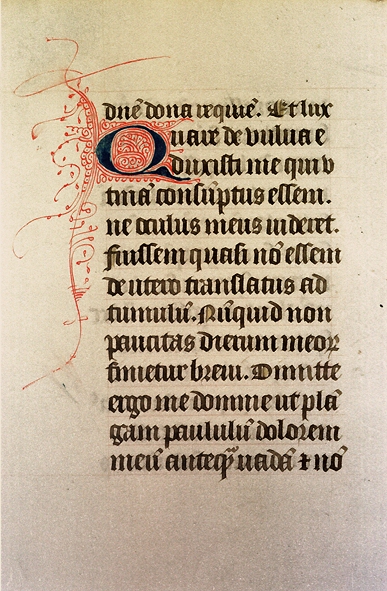 dne᷎ dona requiē. Et lux
Quare de vulua e
duxisti me qui v
tinā consūptus essem.
ne oculus meus uideret.
fuissem quasi nō essem
de utero translatus ad
tumulū. Nūquid non
paucitas dierum meoꝝ
finietur breui. Dimitte
ergo me domine ut plā
gam paululū dolorem
meū anteqͣ̄ uadā ⁊ nō